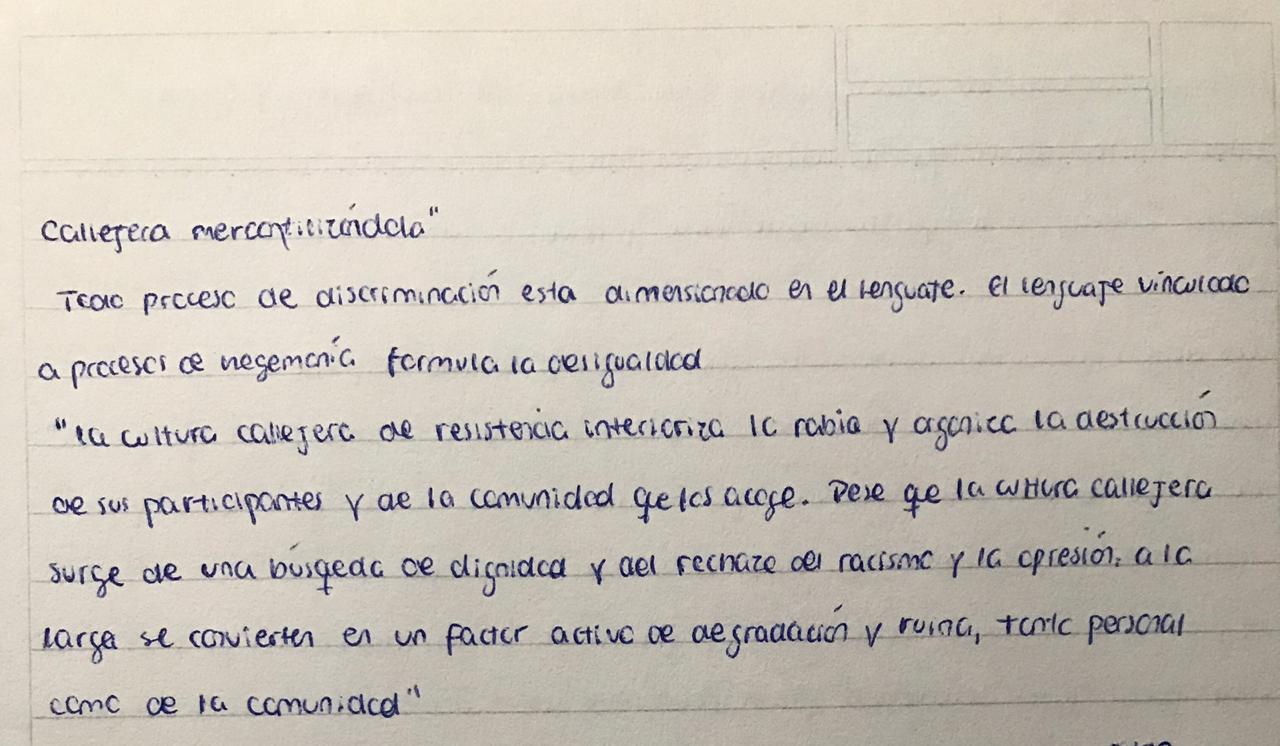 callejera mercantilizándola"
Todo proceso de discriminación esta dimensionado en el lenguaje. el lenguaje vinculado
a procesos de hegemonía formula la desigualdad
"la cultura callejera de resistencia interioriza la rabia y organiza la destrucción
de sus participantes y de la comunidad qe los acoge. Pese qe la cultura callejera
surge de una búsqeda de dignidad y del rechazo del racismo y la opresión, a la
larga se convierten en un factor activo de degradación y ruina, tanto personal
como de la comunidad"